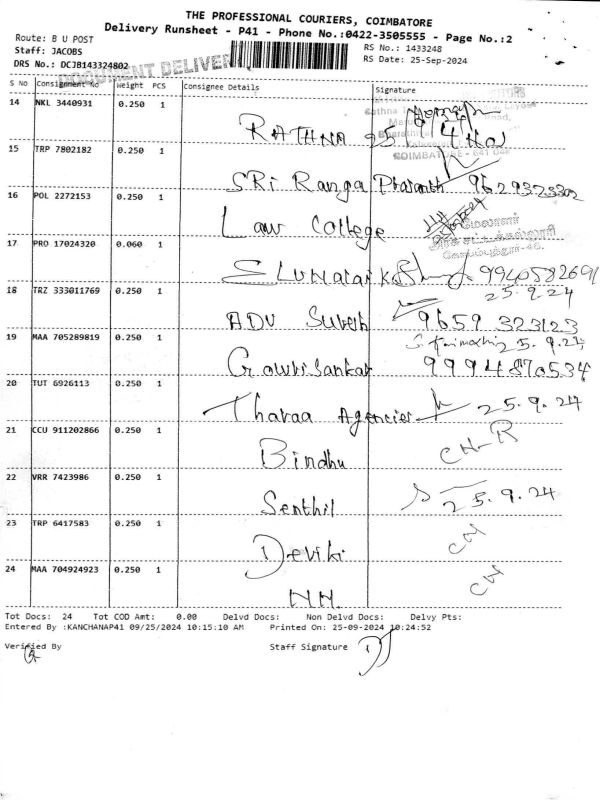 THE PROFESSIONAL COURIERS, COIMBATORE
Delivery Runsheet - P41 - Phone No.:0422-3505555 - Page No.:2
Route: B U POST
RS No.: 1433248
Staff: JACOBS
RS Date: 25-Sep-2024
DRS No.: DCJB143324802
DOCUMENT DELIVER
S No Consignment No Weight PCS Consignee Details Signature
14 NKL 3440931 0.250 1 RATHNA
COIMBATORE - 641 046
15 TRP 7802182 0.250 1 SRi Ranga Prasanth 9629323302
16 POL 2272153 0.250 1 Law College
மேலாளர்
அரசு சட்டக்கல்லூரி
கோயம்புத்தூர்-46.
17 PRO 17024320 0.060 1 9940582691
25.9.24
18 TRZ 333011769 0.250 1 ADV Suresh 9659 323123
25.9.24
19 MAA 705289819 0.250 1 Gowrisankar 9994870534
20 TUT 6926113 0.250 1 Tharaa Agencies 25.9.24
21 CCU 911202866 0.250 1 Bindhu CN-R
22 VRR 7423986 0.250 1 Senthil 25.9.24
23 TRP 6417583 0.250 1 Deviki CN
24 MAA 704924923 0.250 1 NH. CN
Tot Docs: 24 Tot COD Amt: 0.00 Delvd Docs: Non Delvd Docs: Delvy Pts:
Entered By :KANCHANAP41 09/25/2024 10:15:10 AM Printed On: 25-09-2024 10:24:52
Verified By Staff Signature